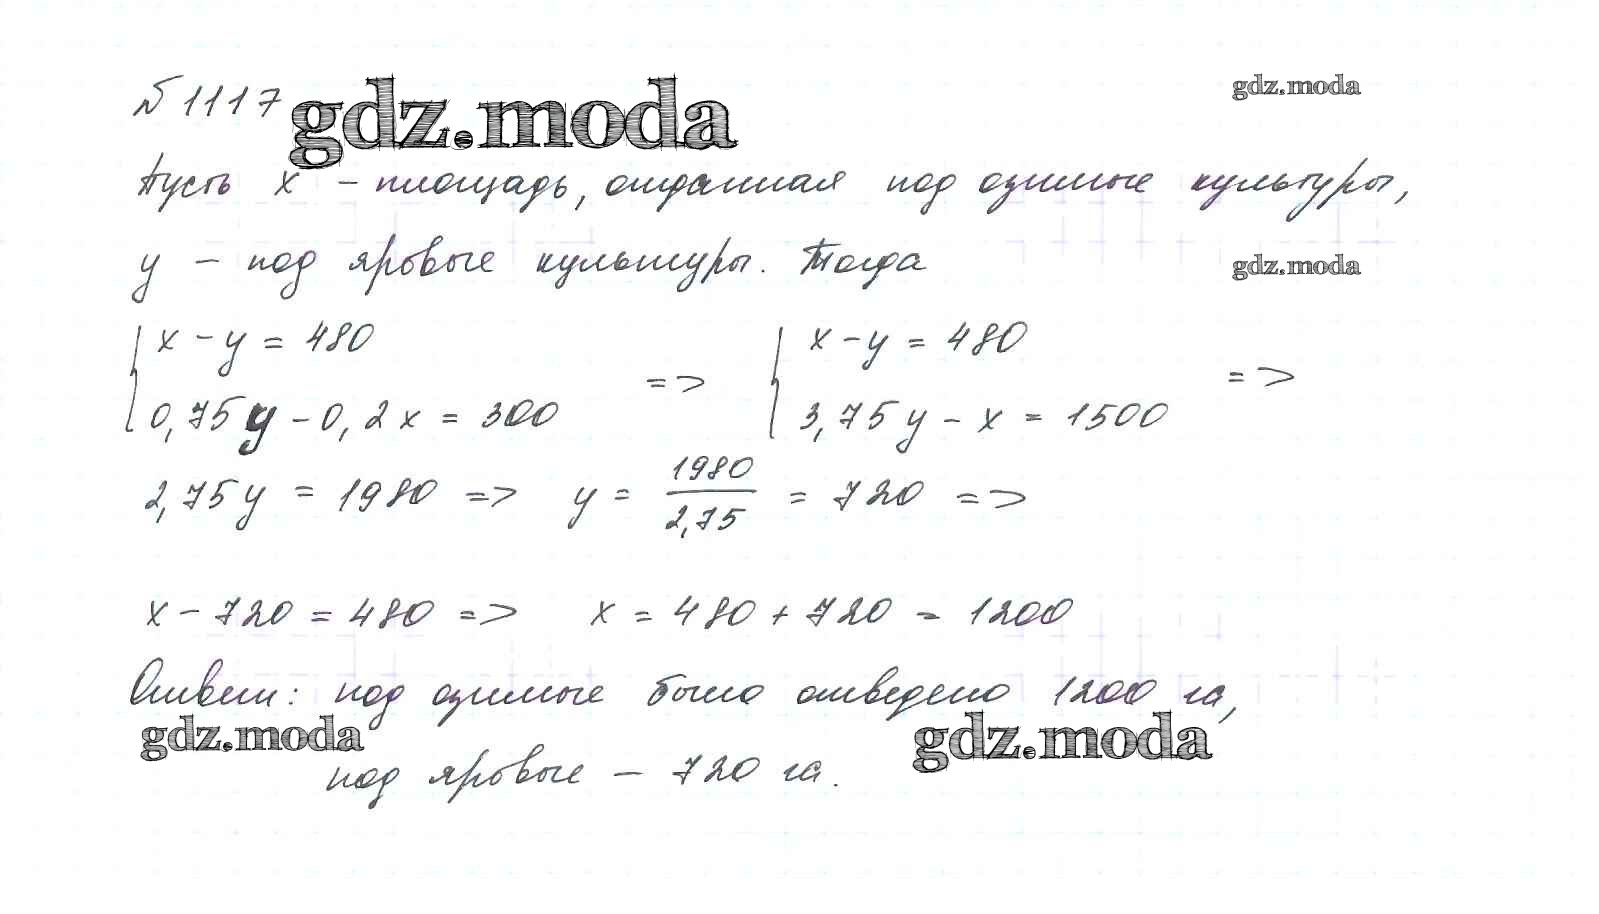 № 1117 gdz.moda gdz.moda
Пусть x – площадь, отданная под озимые культуры,
y – под яровые культуры. Тогда gdz.moda
{ x – y = 480 => { x – y = 480 =>
0,75y – 0,2x = 300 3,75y – x = 1500
2,75y = 1980 => y = 1980/2,75 = 720 =>
x – 720 = 480 => x = 480 + 720 = 1200
Ответ: под озимые было отведено 1200 га,
gdz.moda gdz.moda
под яровые – 720 га.